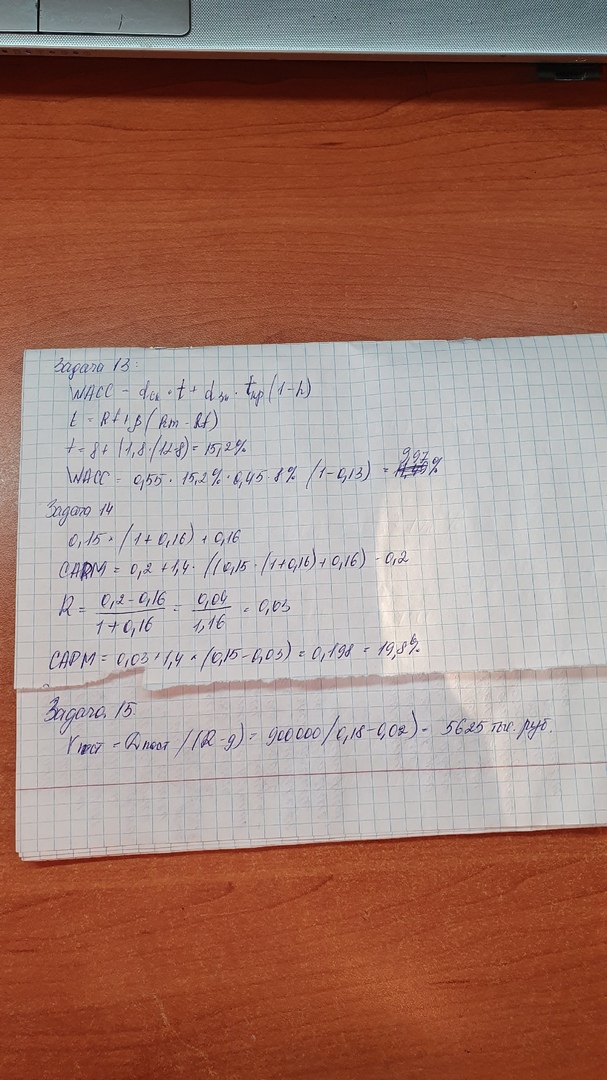 Задача 13:
WACC = dск · t + dзк · tкр (1-h)
t = Rf + β (Rm - Rf)
t = 8 + (1,8 · (12-8) = 15,2%
WACC = 0,55 · 15,2% · 0,45 · 8% (1-0,13) = 9,97%
Задача 14
0,15 · (1+0,16) + 0,16
CAPM = 0,2 + 1,4 · ((0,15 · (1+0,16) + 0,16) - 0,2
R = (0,2-0,16)/(1+0,16) = 0,04/1,16 = 0,03
CAPM = 0,03 + 1,4 × (0,15 - 0,03) = 0,198 = 19,8%
Задача 15.
Vпост = /(R-g) = 900000/(0,18-0,02) = 5625 тыс. руб.